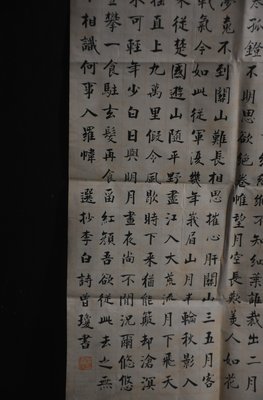 不知細葉誰裁出二月
孤燈不明思欲絕卷帷望月空長歎美人如花
夢魂不到關山難長相思摧心肝關山三五月客
氣今如此從軍復幾年峨眉山月半輪秋影入
來從楚國遊山隨平野盡江入大荒流月下飛天
直上九萬里假令風歇時下來猶能簸卻滄溟
水可輕年少白日與明月晝夜尚不閒況爾悠悠
登攀一食駐玄髮再食留紅顏吾欲從此去去之無
不相識何事入羅幃 選抄李白詩曾瓊書